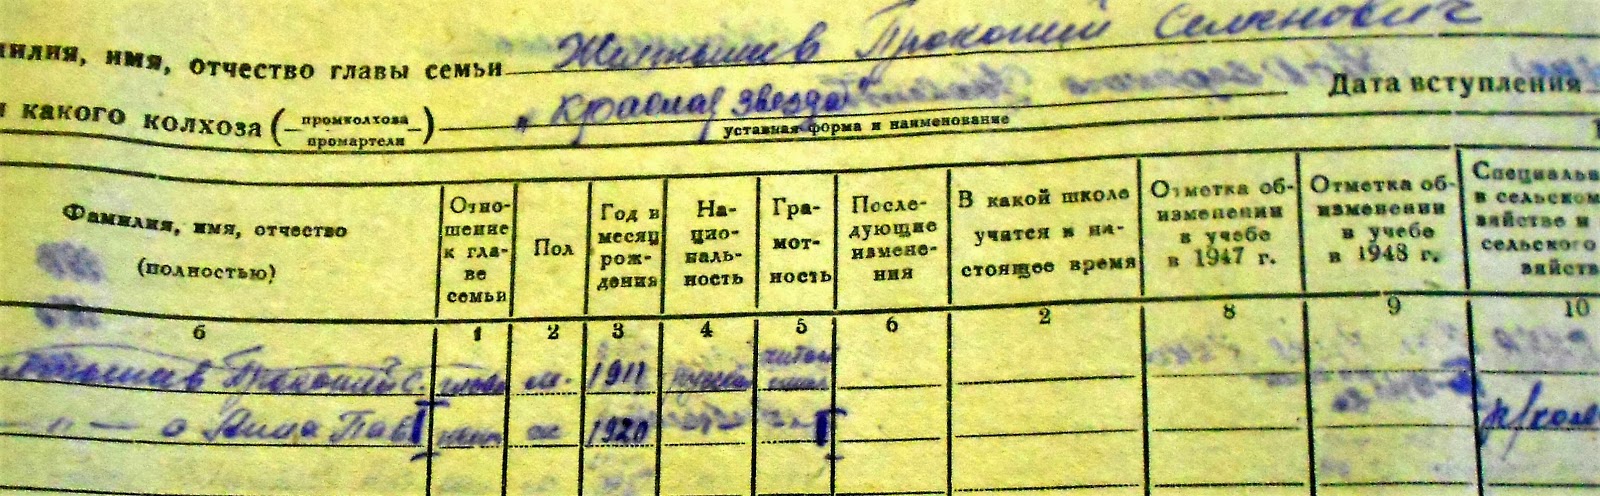 милия, имя, отчество главы семьи Прокопий Семенович
какого колхоза (промколхоза промартели) „Красная звезда" Дата вступления
уставная форма и наименование
Фамилия, имя, отчество (полностью) Отно-шение к гла-ве семьи Пол Год и месяц рож-дения На-цио-наль-ность Гра-мот-ность После-дующие измене-ния В какой школе учатся в на-стоящее время Отметка об-изменении в учебе в 1947 г. Отметка об-изменении в учебе в 1948 г. Специаль в сельском зяйстве и сельского зяйств
б 1 2 3 4 5 6 2 8 9 10
Прокопий С. глава м. 1911
— „ — а Анна Пав ж 1920